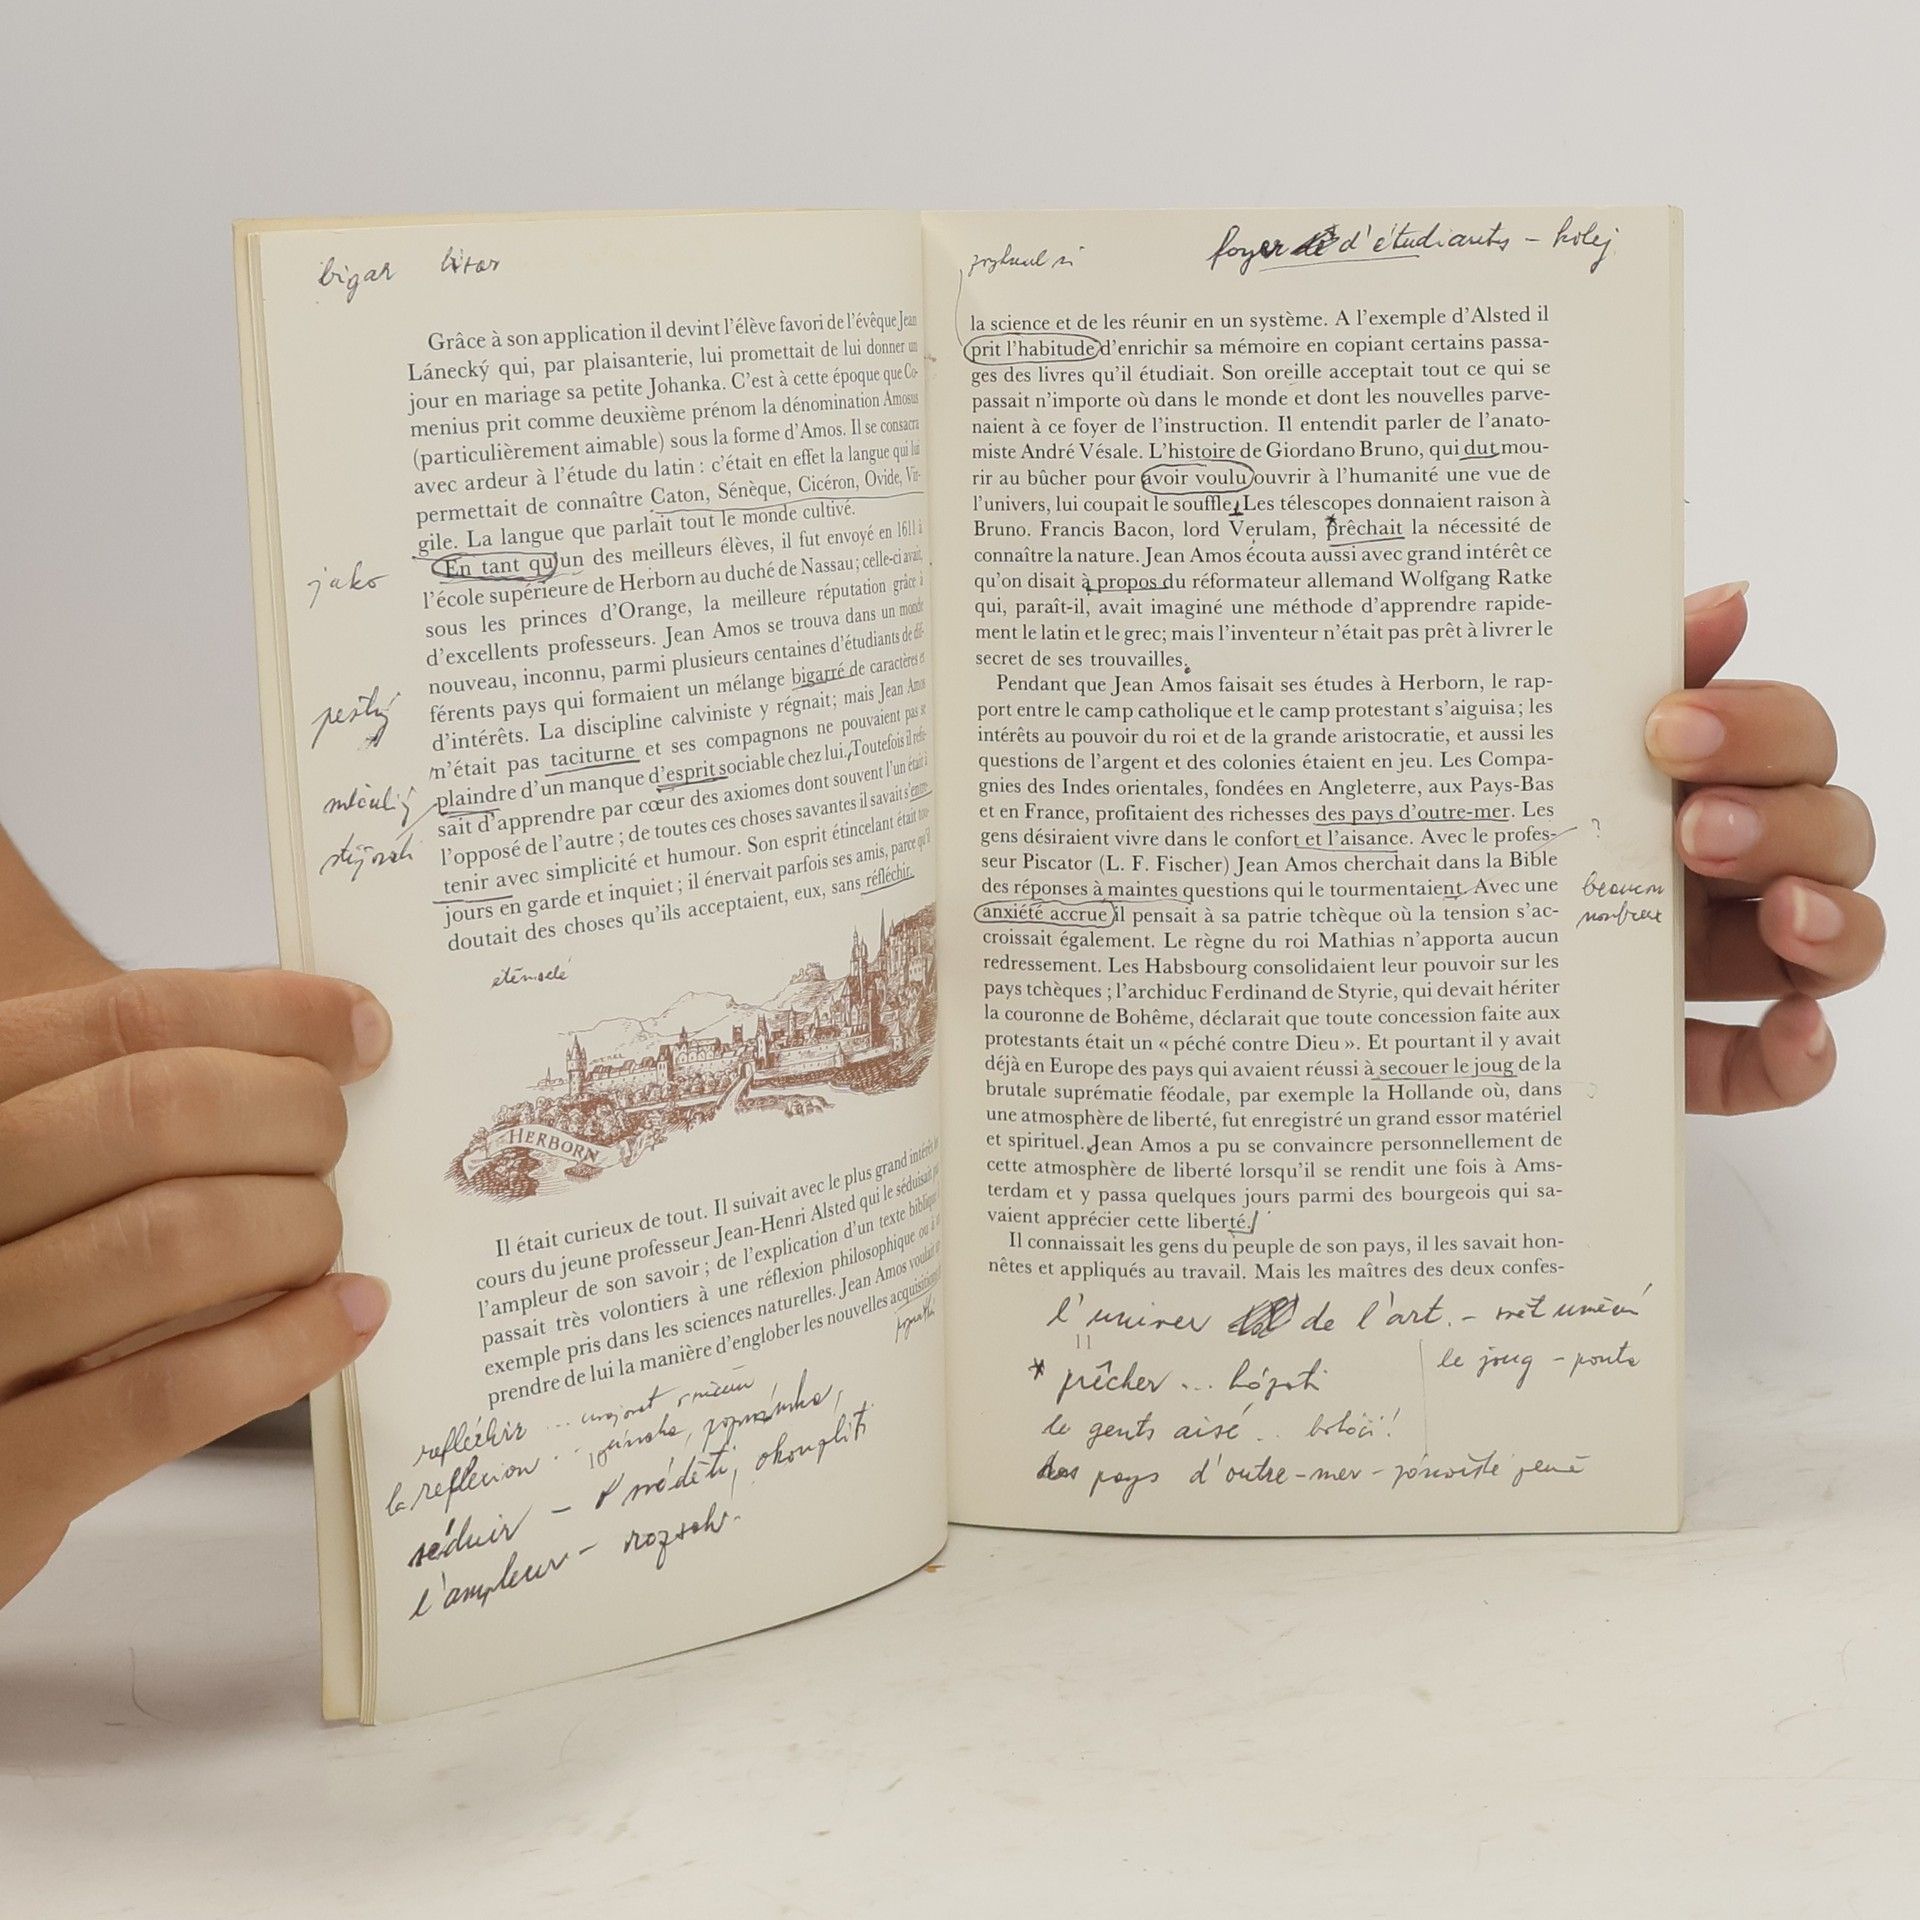 bigar
Grâce à son application il devint l'élève favori de l'évêque Jean
Lánecký qui, par plaisanterie, lui promettait de lui donner un
jour en mariage sa petite Johanka. C'est à cette époque que Co-
menius prit comme deuxième prénom la dénomination Amosus
(particulièrement aimable) sous la forme d'Amos. Il se consacra
avec ardeur à l'étude du latin : c'était en effet la langue qui lui
permettait de connaître Caton, Sénèque, Cicéron, Ovide, Vir-
gile. La langue que parlait tout le monde cultivé.
En tant qu'un des meilleurs élèves, il fut envoyé en 1611 à
jako
l'école supérieure de Herborn au duché de Nassau ; celle-ci avait,
sous les princes d'Orange, la meilleure réputation grâce à
d'excellents professeurs. Jean Amos se trouva dans un monde
nouveau, inconnu, parmi plusieurs centaines d'étudiants de dif-
férents pays qui formaient un mélange bigarré de caractères et
pestrý
d'intérêts. La discipline calviniste y régnait ; mais Jean Amos
n'était pas taciturne et ses compagnons ne pouvaient pas se
mlčulivý
plaindre d'un manque d'esprit sociable chez lui. Toutefois il refu-
sait d'apprendre par cœur des axiomes dont souvent l'un était à
l'opposé de l'autre ; de toutes ces choses savantes il savait s'entre-
tenir avec simplicité et humour. Son esprit étincelant était tou-
jours en garde et inquiet ; il énervait parfois ses amis, parce qu'il
doutait des choses qu'ils acceptaient, eux, sans réfléchir.
HERBORN
Il était curieux de tout. Il suivait avec le plus grand intérêt les
cours du jeune professeur Jean-Henri Alsted qui le séduisait par
l'ampleur de son savoir ; de l'explication d'un texte biblique il
passait très volontiers à une réflexion philosophique ou à un
exemple pris dans les sciences naturelles. Jean Amos voulait ap-
prendre de lui la manière d'englober les nouvelles acquisitions de
refléchir
la reflexion
10
séduir – okouzliti
l'ampleur – rozsah
foyer d'étudiants – kolej
la science et de les réunir en un système. A l'exemple d'Alsted il
prit l'habitude d'enrichir sa mémoire en copiant certains passa-
ges des livres qu'il étudiait. Son oreille acceptait tout ce qui se
passait n'importe où dans le monde et dont les nouvelles parve-
naient à ce foyer de l'instruction. Il entendit parler de l'anato-
miste André Vésale. L'histoire de Giordano Bruno, qui dut mou-
rir au bûcher pour avoir voulu ouvrir à l'humanité une vue de
l'univers, lui coupait le souffle. Les télescopes donnaient raison à
Bruno. Francis Bacon, lord Verulam, prêchait la nécessité de
connaître la nature. Jean Amos écouta aussi avec grand intérêt ce
qu'on disait à propos du réformateur allemand Wolfgang Ratke
qui, paraît-il, avait imaginé une méthode d'apprendre rapide-
ment le latin et le grec; mais l'inventeur n'était pas prêt à livrer le
secret de ses trouvailles.
Pendant que Jean Amos faisait ses études à Herborn, le rap-
port entre le camp catholique et le camp protestant s'aiguisa ; les
intérêts au pouvoir du roi et de la grande aristocratie, et aussi les
questions de l'argent et des colonies étaient en jeu. Les Compa-
gnies des Indes orientales, fondées en Angleterre, aux Pays-Bas
et en France, profitaient des richesses des pays d'outre-mer. Les
gens désiraient vivre dans le confort et l'aisance. Avec le profes-
?
seur Piscator (L. F. Fischer) Jean Amos cherchait dans la Bible
des réponses à maintes questions qui le tourmentaient. Avec une
anxiété accrue il pensait à sa patrie tchèque où la tension s'ac-
croissait également. Le règne du roi Mathias n'apporta aucun
redressement. Les Habsbourg consolidaient leur pouvoir sur les
pays tchèques ; l'archiduc Ferdinand de Styrie, qui devait hériter
la couronne de Bohême, déclarait que toute concession faite aux
protestants était un « péché contre Dieu ». Et pourtant il y avait
déjà en Europe des pays qui avaient réussi à secouer le joug de la
brutale suprématie féodale, par exemple la Hollande où, dans
une atmosphère de liberté, fut enregistré un grand essor matériel
et spirituel. Jean Amos a pu se convaincre personnellement de
cette atmosphère de liberté lorsqu'il se rendit une fois à Ams-
terdam et y passa quelques jours parmi des bourgeois qui sa-
vaient apprécier cette liberté.
Il connaissait les gens du peuple de son pays, il les savait hon-
nêtes et appliqués au travail. Mais les maîtres des deux confes-
l'univer de l'art. – svět umění
11
le joug – pouta
* prêcher ... hózati
le gents aisé .. boháči!
des pays d'outre-mer – zámořské země